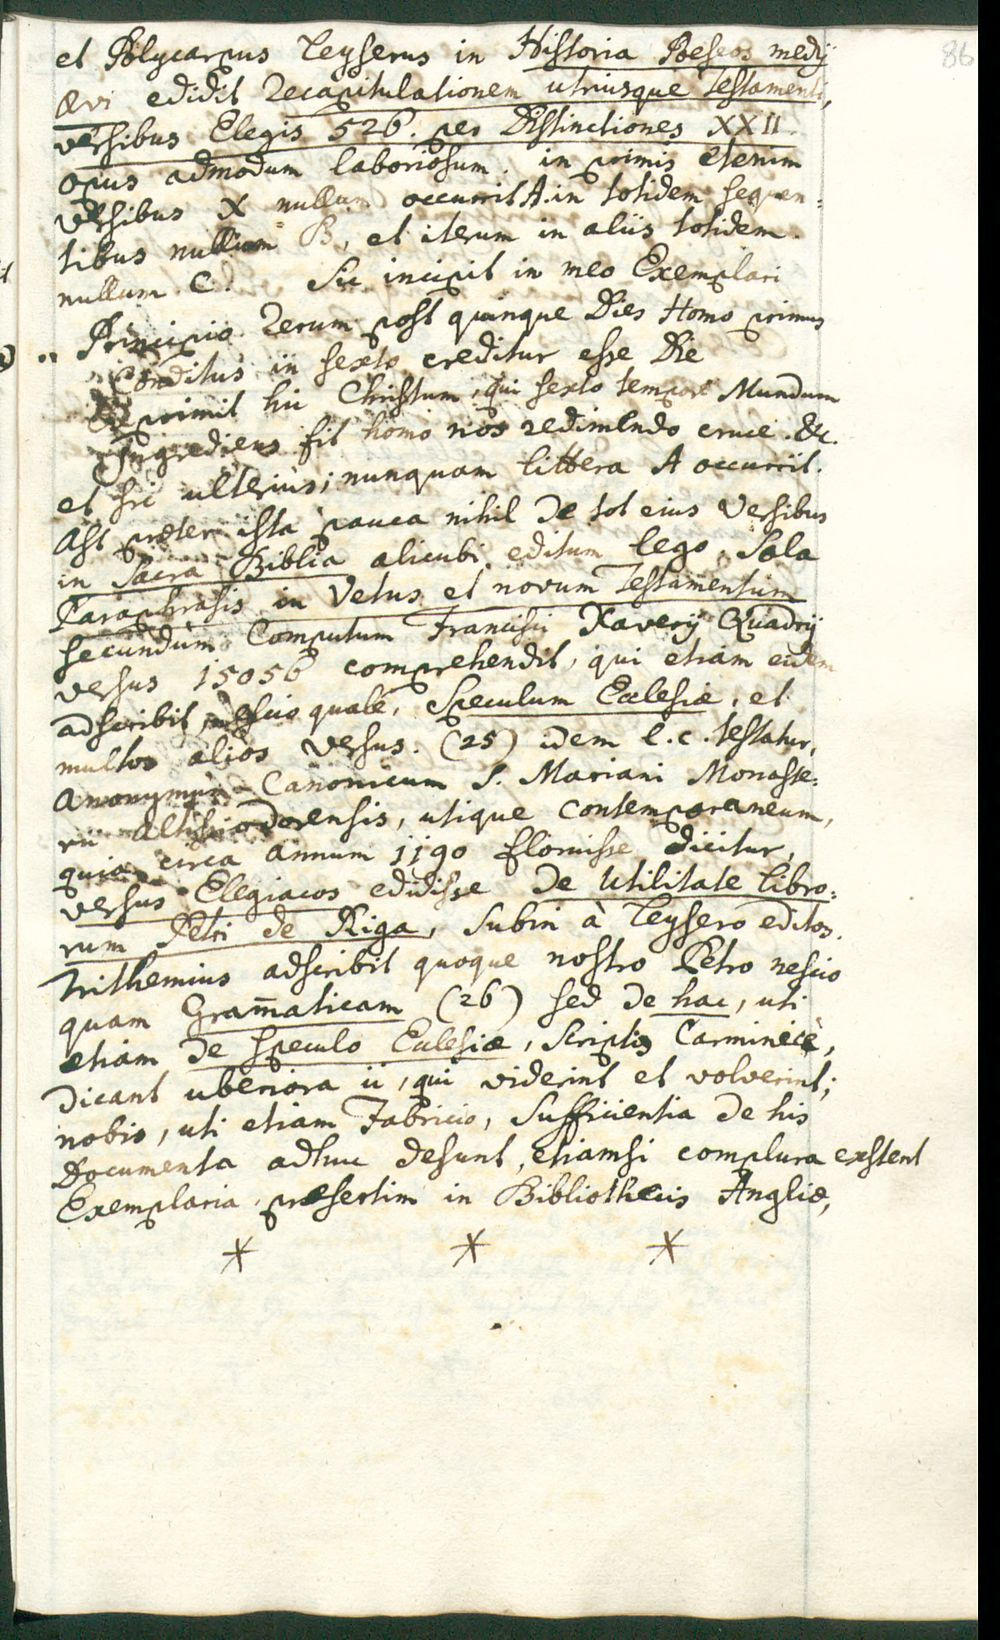 86
et Polycarpus Leyserus in Historia Poeseos medij
Ævi edidit Recapitulationem utriusque Testamenti,
versibus Elegis 526. per Distinctiones XXII.
opus admodum laboriosum. in primis etenim
versibus X nullum occurrit A. in totidem sequen:
tibus nullum B, et iterum in aliis totidem
nullum C. Sic incipit in meo Exemplari
„ Principio Rerum post quinque Dies Homo primus
Conditus in sexto creditur esse Die
Exprimit hic Christum, qui sexto tempore Mundum
Ingrediens fit homo nos redimendo cruce. &c.
et sic ulteriùs; nunquam littera A occurrit.
Ast præter ista pauca nihil de tot eius Versibus
in Sacra Biblia alicubi editum lego. Sola
Paraphrasis in Vetus et novum Testamentum
secundum Computum Francisci Xaverij Quadrij
versus 15056 comprehendit, qui etiam eidem
adscribit, nescio quale, Speculum Ecclesiæ, et
multos alios Versus. (25) idem l. c. testatur,
Anonymum Canonicum S. Mariani Monaste:
rii Altissiodorensis, utique contemporaneum,
quia circa annum 1190 floruisse dicitur,
versus Elegiacos edidisse De Utilitate Libro:
rum Petri de Riga, subin à Leysero editos.
Trithemius adscribit quoque nostro Petro nescio
quam Gram̄aticam (26) sed de hac, uti
etiam de Speculo Eclesiæ, scriptis Carminicè,
dicant uberiora ii, qui viderint et volverint;
nobis, uti etiam Fabricio, sufficientia de his
Documenta adhuc desunt, etiamsi complura exstent
Exemplaria præsertim in Bibliothecis Angliæ,
* * *